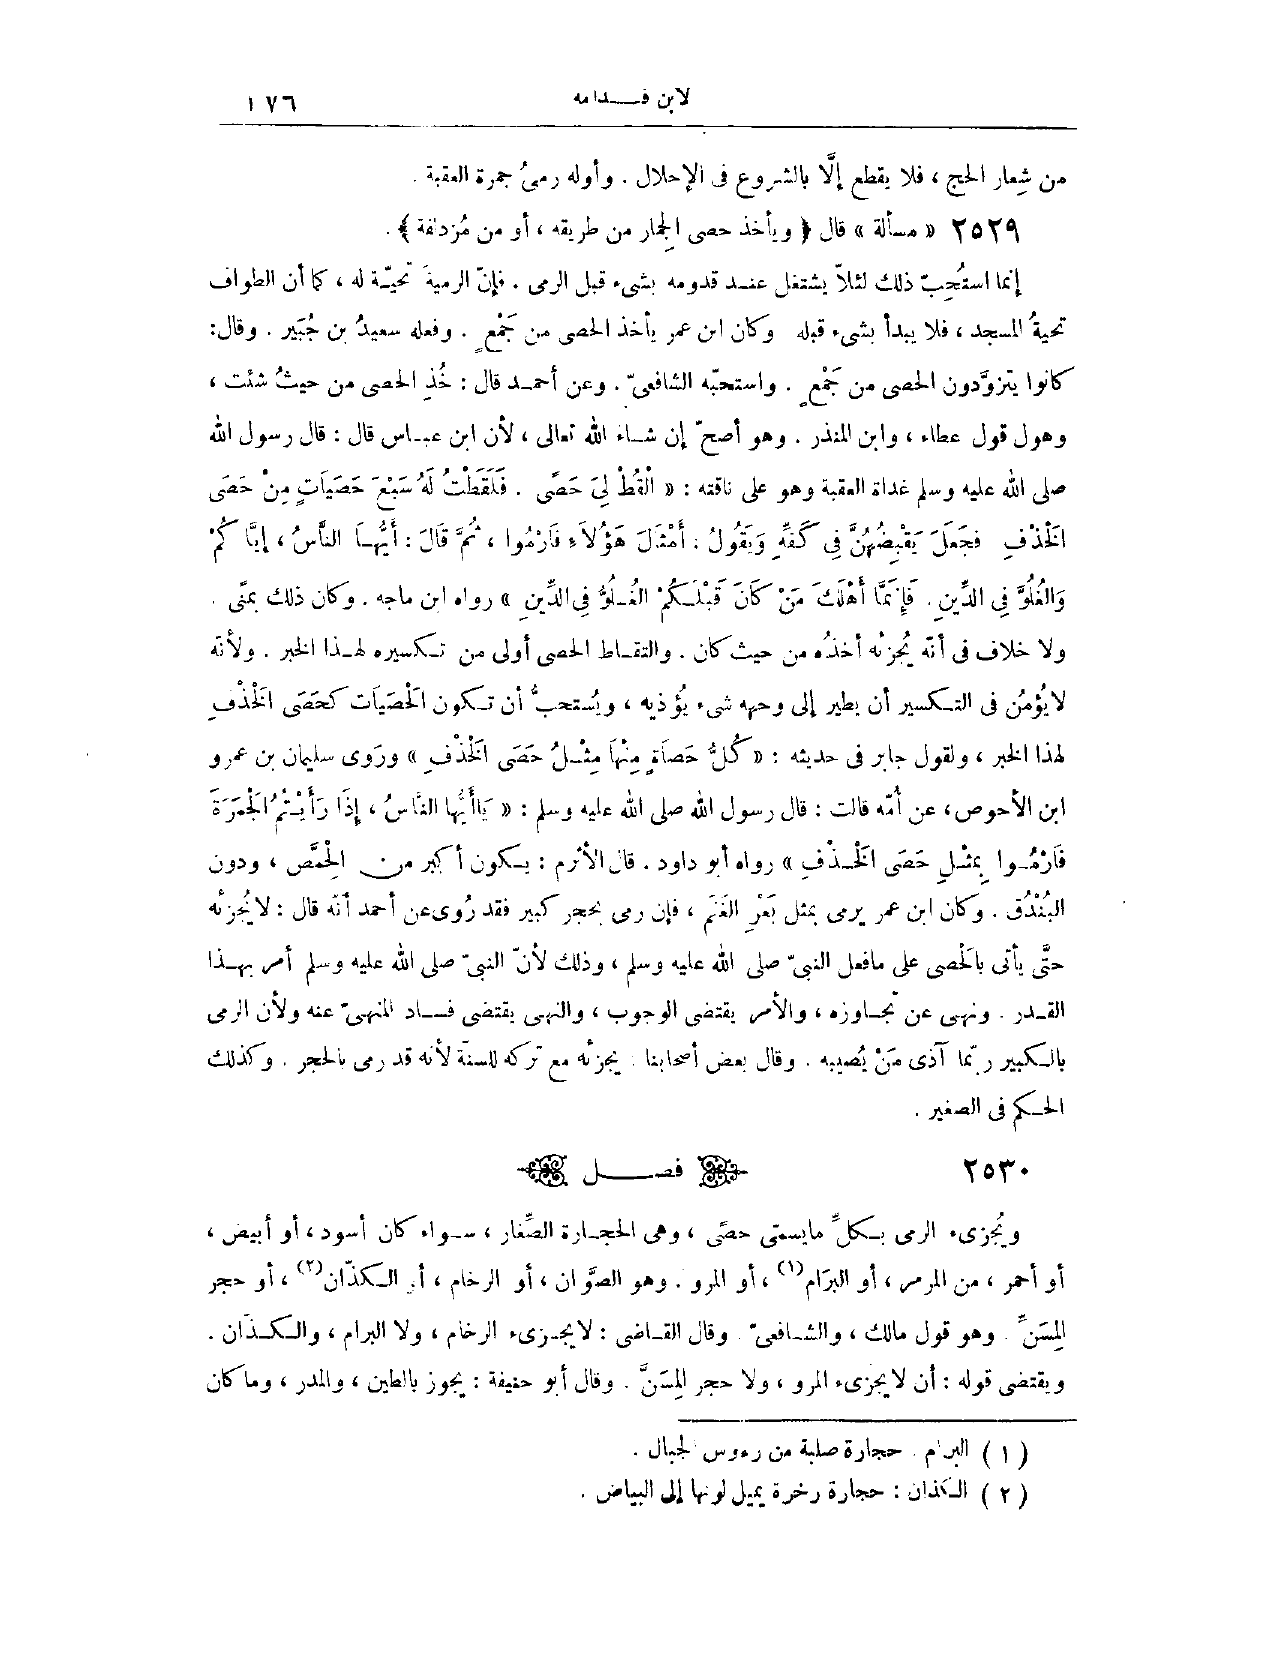 لابن قدامه ١٧٦
من شِعار الحج ، فلا يقطع إلَّا بالشروع فى الإحلال . وأوله رمىُ جمرة العقبة .
٢٥٢٩ « مسألة » قال ﴿ ويأخذ حصى الجِمار من طريقه ، أو من مُزدلفة ﴾ .
إنما استُحِبّ ذلك لئلاّ يشتغل عند قدومه بشىء قبل الرمى . فإنّ الرمية تحيّة له ، كما أن الطواف
تحيةُ المسجد ، فلا يبدأ بشىء قبله وكان ابن عمر يأخذ الحصى من جَمْعٍ . وفعله سعيدُ بن جُبَير . وقال:
كانوا يتزوَّدون الحصى من جَمْعٍ . واستحبّه الشافعىّ . وعن أحمد قال : خُذِ الحصى من حيثُ شئت ،
وهول قول عطاء ، وابن المنذر . وهو أصحّ إن شاء الله تعالى ، لأن ابن عباس قال : قال رسول الله
صلى الله عليه وسلم غداة العقبة وهو على ناقته : « الْقُطْ لِيَ حَصًى . فَلَقَطْتُ لَهُ سَبْعَ حَصَيَاتٍ مِنْ حَصَى
الْخَذْفِ فَجَعَلَ يَقْبِضُهُنَّ فِى كَفِّهِ وَيَقُولُ : أَمْثَالَ هَؤُلَاءِ فَارْمُوا ، ثُمَّ قَالَ : أَيُّهَا النَّاسُ ، إِيَّا كُمْ
وَالْغُلُوَّ فِى الدِّينِ . فَإِنَّمَا أَهْلَكَ مَنْ كَانَ قَبْلَكُمْ الغُلُوُّ فِى الدِّينِ » رواه ابن ماجه . وكان ذلك بمنًى .
ولا خلاف فى أنّه يُجزئه أخذُه من حيث كان . والتقاط الحصى أولى من تكسيره لهذا الخبر . ولأنّه
لا يُؤمَنُ فى التكسير أن يطير إلى وجهه شىء يُؤذيه ، ويُستحبُّ أن تكون الحَصَيَات كَحَصَى الْخَذْفِ
لهذا الخبر ، ولقول جابر فى حديثه : « كُلُّ حَصَاةٍ مِنْهَا مِثْلُ حَصَى الْخَذْفِ » ورَوى سليمان بن عمرو
ابن الأحوص، عن أُمّه قالت : قال رسول الله صلى الله عليه وسلم : « يَاأَيُّهَا النَّاسُ ، إِذَا رَأَيْتُمُ الْجَمْرَةَ
فَارْمُوا بِمِثْلِ حَصَى الْخَذْفِ » رواه أبو داود . قال الأثرم : يكون أكبر من الحِمَّص ، ودون
البُنْدُق . وكان ابن عمر يرمى بمثل بَعْرِ الغَنَم ، فإن رمى بحجر كبير فقد رُوى عن أحمد أنّه قال : لا يُجزئه
حتَّى يأتى بالحصى على مافعل النبىّ صلى الله عليه وسلم ، وذلك لأنّ النبىّ صلى الله عليه وسلم أمر بهذا
القدر . ونهى عن تجاوزه ، والأمر يقتضى الوجوب ، والنهى يقتضى فساد المنهىّ عنه ولأن الرمى
بالكبير ربّما آذى مَنْ يُصيبه . وقال بعض أصحابنا : يجزئه مع تركه للسنّة لأنه قد رمى بالحجر . وكذلك
الحكم فى الصغير .
٢٥٣٠ فصل
ويُجزىء الرمى بكلِّ مايسمّى حصًى ، وهى الحجارة الصِّغار ، سواء كان أسود ، أو أبيض ،
أو أحمر ، من المرمر ، أو البرَام(١) ، أو المرو . وهو الصَّوَّان ، أو الرخام ، أو الكذّان(٢) ، أو حجر
المِسَنِّ . وهو قول مالك ، والشافعىّ . وقال القاضى : لا يجزىء الرخام ، ولا البرام ، والكذَّان .
ويقتضى قوله : أن لا يجزىء المرو ، ولا حجر المِسَنَّ . وقال أبو حنيفة : يجوز بالطين ، والمدر ، وما كان
( ١ ) البرام . حجارة صلبة من رءوس الجبال .
( ٢ ) الكذان : حجارة رخرة يميل لونها إلى البياض .